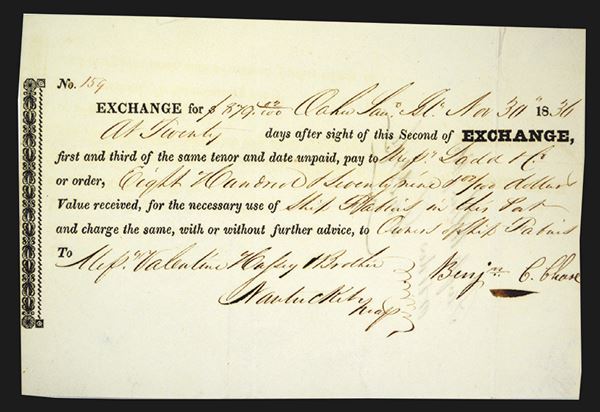 No. 159
EXCHANGE for $ 879 00/100 Oahu San. Isl. Nov 30" 1836
At Twenty days after sight of this Second of EXCHANGE,
first and third of the same tenor and date unpaid, pay to Messrs. Ladd & Co
or order, Eight Hundred & Seventy nine 00/100 dollars
Value received, for the necessary use of Ship in this Port
and charge the same, with or without further advice, to Owners of Ship
To
Messrs. Valentine Hussey & Brother
Benjn. C. Chase
Nantucket
Mass